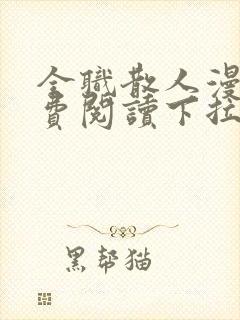 全職散人漫
費閱讀下拉
黑帮猫